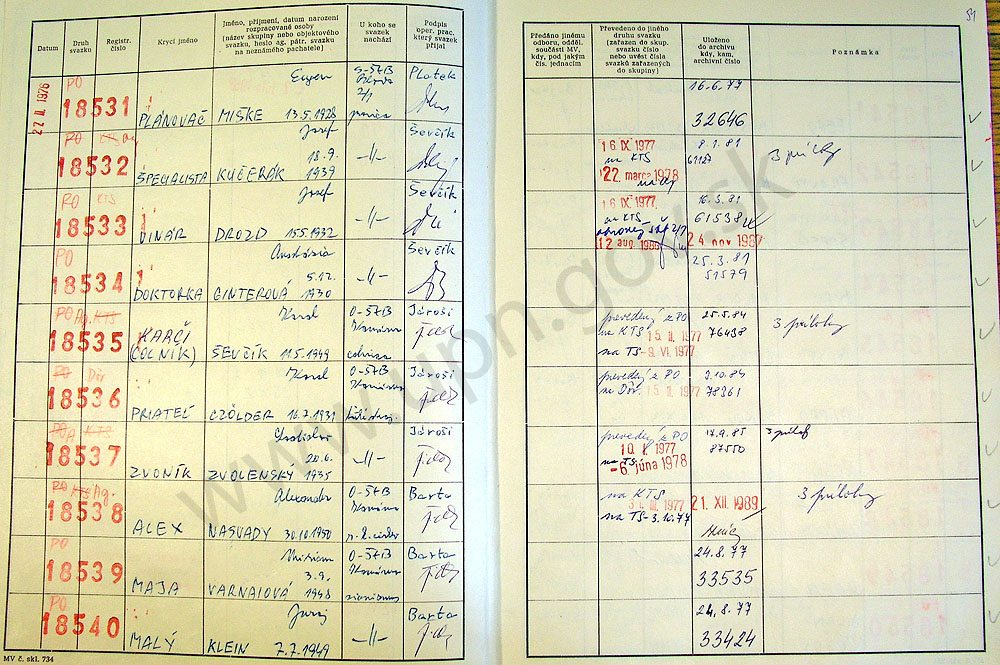 51
Datum
Druh svazku
Registr. číslo
Krycí jméno
Jméno, příjmení, datum narození
rozpracované osoby
[název skupiny nebo objektového
svazku, heslo ag. pátr. svazku
na neznámého pachatele]
U koho se
svazek
nachází
Podpis
oper. prac.
který svazek
přijal
Předáno jinému
odboru, odděl.
součásti MV,
kdy, pod jakým
čís. jednacím
Převedeno do jiného
druhu svazku
(zařazen do skup.
svazku číslo
nebo uvést čísla
svazků zařazených
do skupiny)
Uloženo
do archivu
kdy, kam,
archivní číslo
Poznámka
PO
18531
PLÁNOVAČ
Eugen
MIŠKE 13.5.1928
2/1
Platek
16.6.77
32646
PO KTS Ag
18532
ŠPECIALISTA
Josef
18.9.
KUČERÁK 1939
-11-
Ševčík
16 IX. 1977
na KTS
22. marca 1978
na Ag
8.1.81
61127
3 prílohy
PO KTS
18533
VINÁR
Josef
DROZD 15.5.1932
-11-
Ševčík
16 IX. 1977
na KTS
12 aug. 1986
16.3.81
61538
24 nov 1987
PO
18534
DOKTORKA
5.12.
GINTEROVÁ 1930
-11-
Ševčík
25.3.81
51579
PO Ag. KTS
18535
KARČÍ
(COLNÍK)
Karol
ŠEVČÍK 11.5.1949
O-ŠTB
Komárno
colnica
Jároši
prevedený z PO
na KTS 15. II. 1977
na TS -9. VI. 1977
25.5.84
76438
3 prílohy
PO Dôv
18536
PRIATEĽ
Karol
CZÖLDER 16.7.1931
O-ŠTB
Komárno
Jároši
prevedený z PO
na Dôv. 15. II. 1977
3.10.84
78361
PO A KTS
18537
ZVONÍK
20.6.
ZVOLENSKÝ 1935
-11-
Jároši
prevedený z PO
1977
na TS
-6 júna 1978
17.9.85
87550
3 príloh
PO KTS Ag.
18538
ALEX
Alexander
NASVADY 30.10.1950
O-ŠTB
Komárno
Barta
na KTS
1977
na TS-3.10.77
21. XII. 1989
3 prílohy
PO
18539
MAJA
Miriam
3.9.
VARNAIOVÁ 1948
O-ŠTB
Komárno
sionizmus
Barta
24.8.77
33535
PO
18540
MALÝ
Juraj
KLEIN 7.7.1949
-11-
Barta
24.8.77
33424
MV č. skl. 734
www.upn.gov.sk